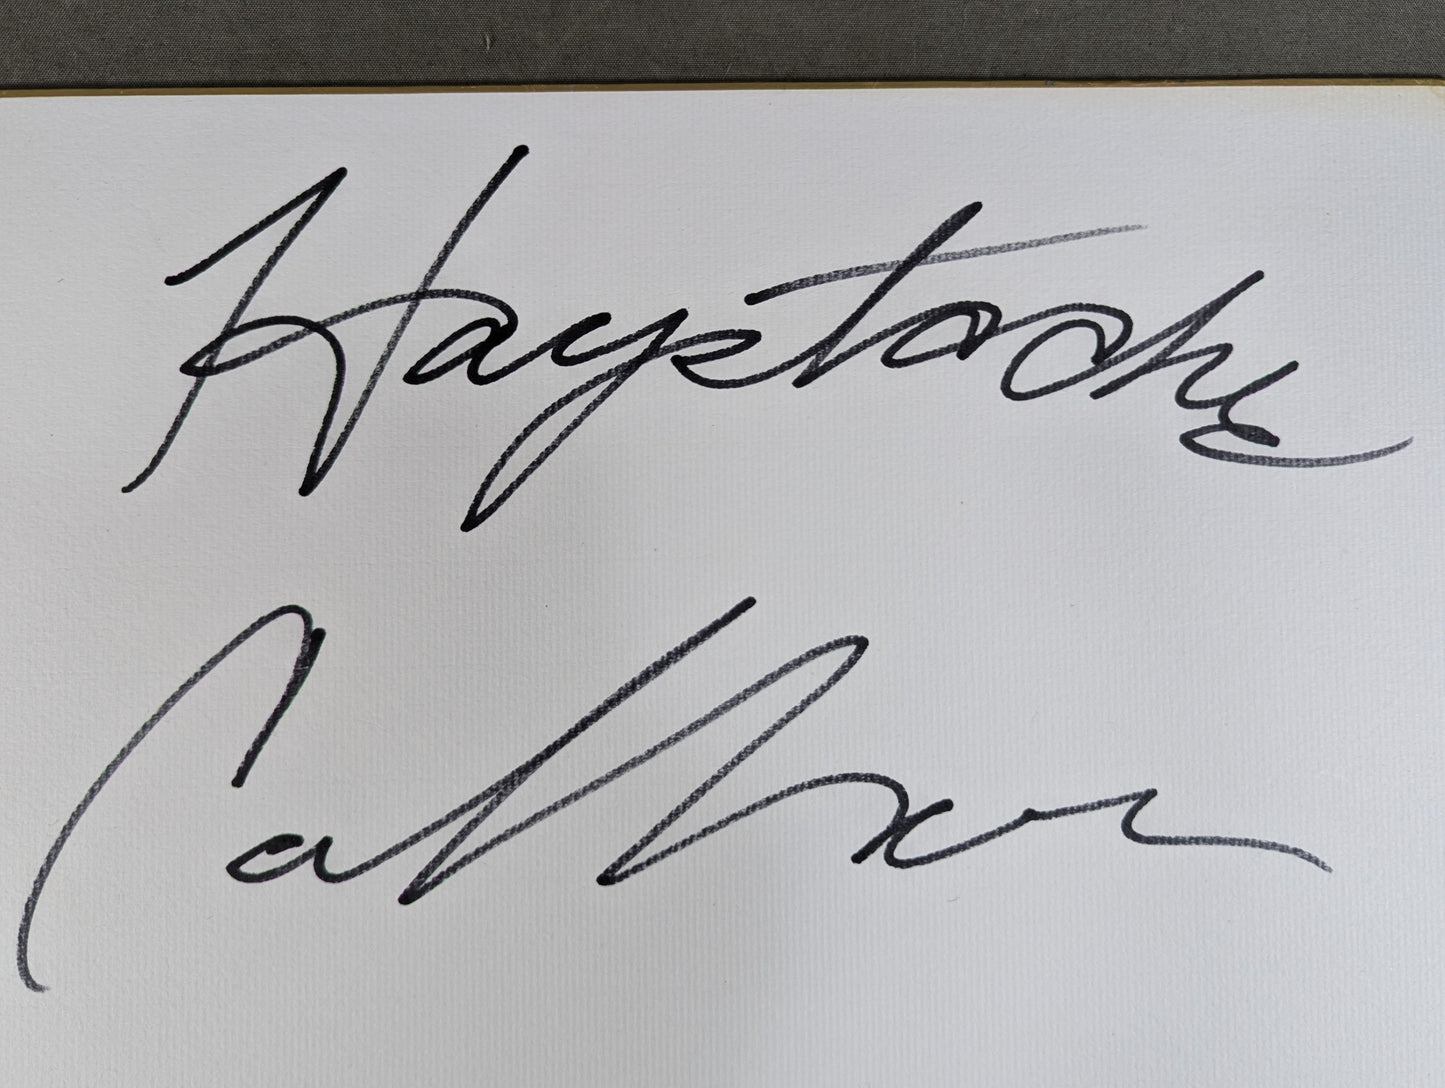 Haystacks
Calhoun